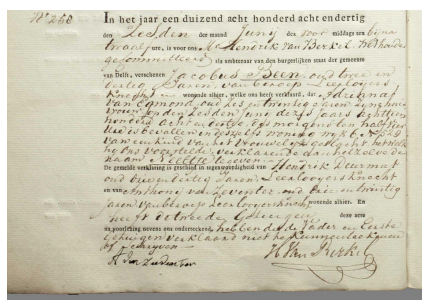 N° 250
In het jaar een duizend acht honderd acht en dertig
den Zesden der maand Juny des voor middags ten bijna
twaalf ure, is voor ons Mr Hendrik van Berkel Wethouder
gecommitteerd als ambtenaar van den burgerlijken staat der gemeente
van Delft, verschenen Jacobus Been oud twee en
dertig Jaren van beroep Leerlooyers
knecht wonende alhier, welke ons heeft verklaard, dat Adriana
van Egmond oud zes en twintig Jaren zijn huis
vrouw op den Zesden Juny dezes jaars achttien
honderd acht en dertig des morgens ten half
ure is bevallen in deszelfs woning wijk 6 N° 529
van een kind van het vrouwelijk geslacht hetwelk
hij ons voorstelde verklarende aan hetzelve den
naam Neeltje te geven
De gemelde verklaring is geschied in tegenwoordigheid van Hendrik
oud Leerlooyersknecht
en van Anthony van Deventer oud drie en twintig
jaren van beroep Leerlooyersknecht wonende alhier. En
heeft de tweede Getuige deze acte
na voorlezing nevens ons onderteekend, hebbende de Vader en Eerste
Getuigen verklaard niet te kunnen teekenen
of schrijven
H Van Berkel
A van Deventer